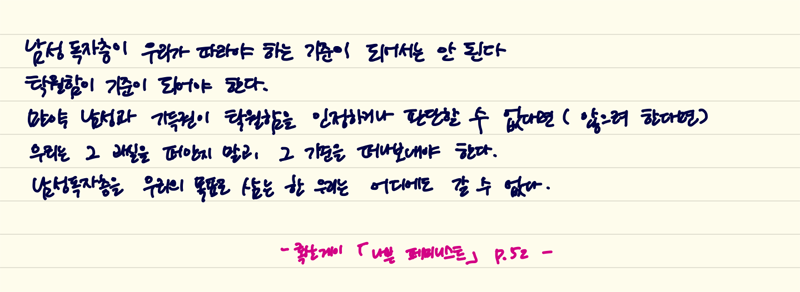 남성 독자층이 우리가 따라야 하는 기준이 되어서는 안 된다
탁월함이 기준이 되어야 한다.
만약 남성과 기득권이 탁월함을 인정하거나 판단할 수 없다면 ( 않으려 한다면)
우리는 그 과실을 떠안지 말고, 그 기준을 떠나보내야 한다.
남성독자층을 우리의 목표로 삼는 한 우리는 어디에도 갈 수 없다.
- 록산 게이 「나쁜 페미니스트」 p.52 -